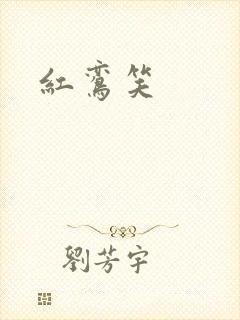 紅鸞笑
劉芳宇